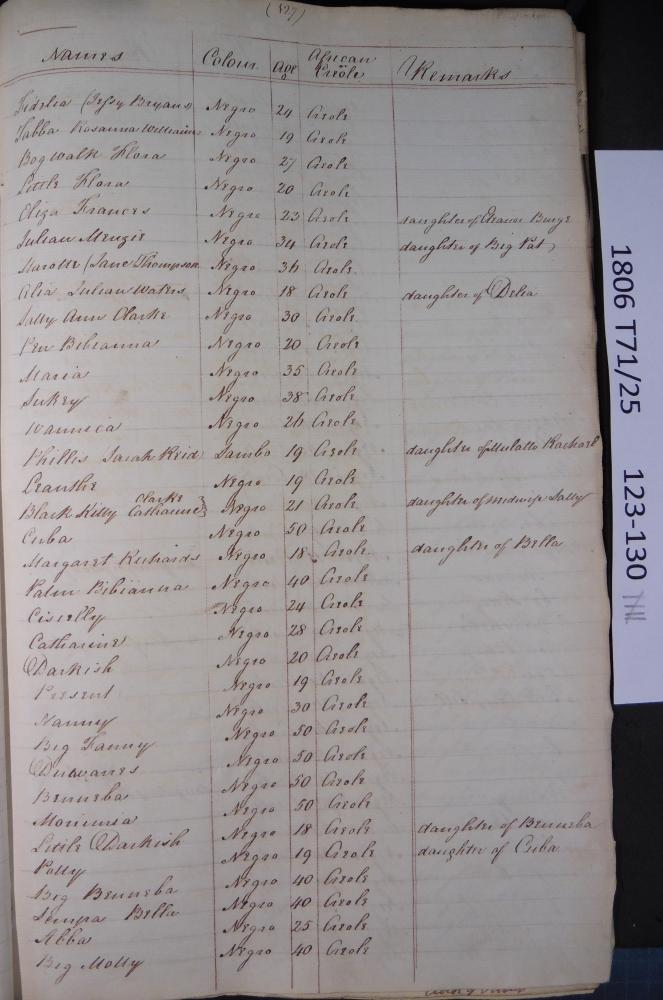 (127)
Names Colour Age African or Creole Remarks
Fidelia (Jessy Bryans) Negro 24 Creole
Tabba Rosanna Williams Negro 19 Creole
Bogwalk Flora Negro 27 Creole
Little Flora Negro 20 Creole
Eliza Frances Negro 23 Creole daughter of Eleanor Burge
Julian Menzie Negro 34 Creole daughter of Big Pat
Marotte (Jane Thompson Negro 36 Creole
Celia Julian Waters Negro 18 Creole daughter of Delia
Sally Ann Clarke Negro 30 Creole
Pen Bibianna Negro 20 Creole
Maria Negro 35 Creole
Sukey Negro 38 Creole
Wannica Negro 26 Creole
Phillis Sarah Reid Sambo 19 Creole daughter of Mulatto Rachael
Leanthe Negro 19 Creole
Black Kitty Clarke Catharine } Negro 21 Creole daughter of Midwife Sally
Cuba Negro 50 Creole
Margaret Richards Negro 18 Creole daughter of Bella
Palm Bibianna Negro 40 Creole
Ciselly Negro 24 Creole
Catharine Negro 28 Creole
Darkish Negro 20 Creole
Present Negro 19 Creole
Nanny Negro 30 Creole
Big Fanny Negro 50 Creole
Negro 50 Creole
Benneba Negro 50 Creole
Monimia Negro 50 Creole
Little Darkish Negro 18 Creole daughter of Benneba
Polly Negro 19 Creole daughter of Cuba
Big Benneba Negro 40 Creole
Bella Negro 40 Creole
Abba Negro 25 Creole
Big Molly Negro 40 Creole
1806 T71/25 123-130